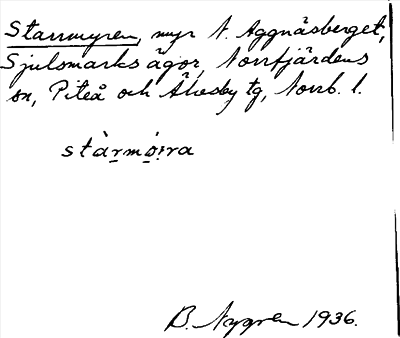 Starrmyren, myr N. Aggnäsberget,
Sjulsmarks ägor, Norrfjärdens
sn, Piteå och Älvsby tg, Norrb. l.
B. Nygren 1936.